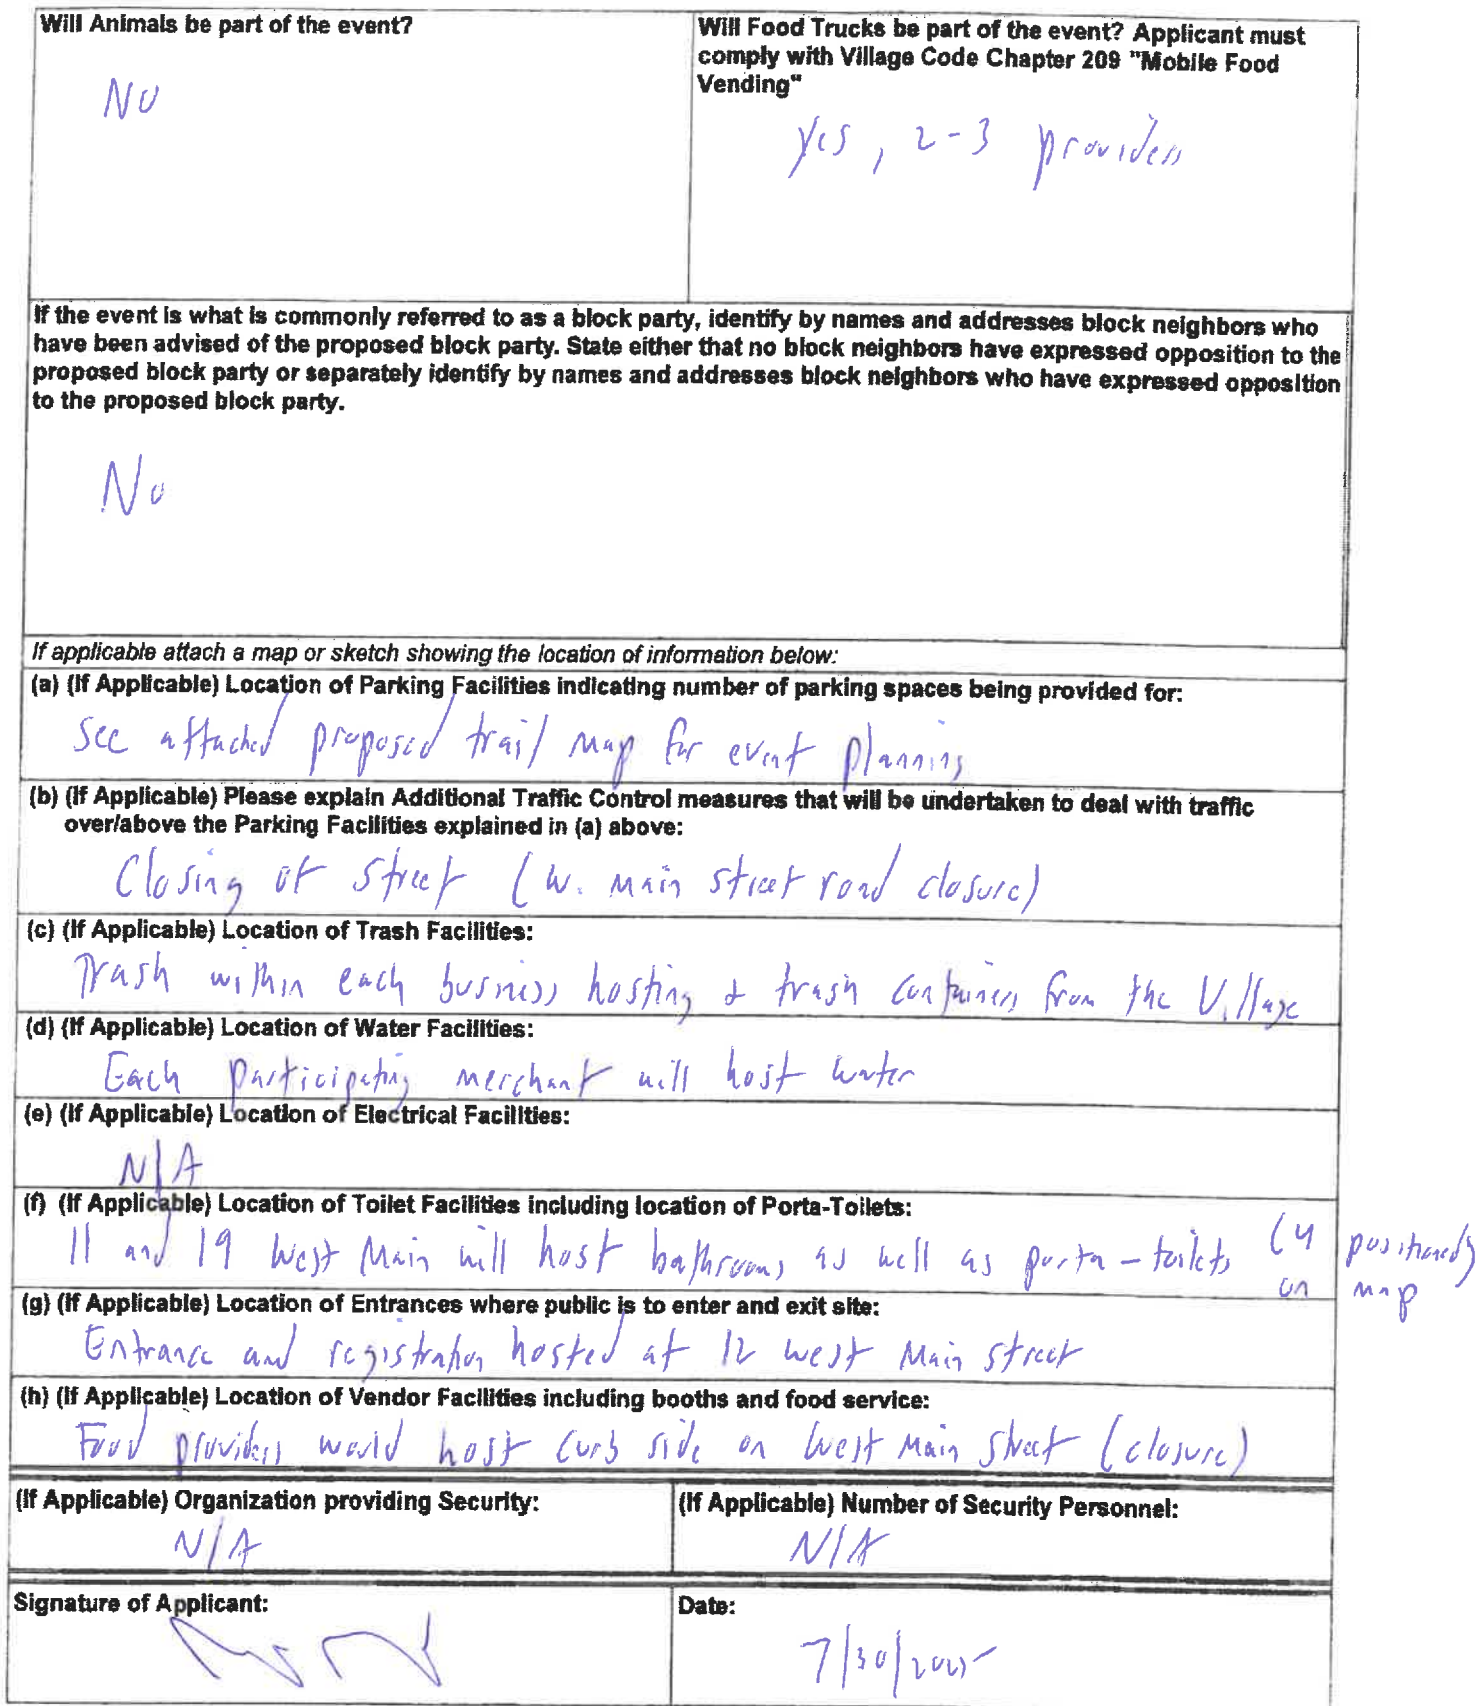 Will Animals be part of the event?
No
Will Food Trucks be part of the event? Applicant must
comply with Village Code Chapter 209 "Mobile Food
Vending"
Yes, 2-3 providers
If the event is what is commonly referred to as a block party, identify by names and addresses block neighbors who
have been advised of the proposed block party. State either that no block neighbors have expressed opposition to the
proposed block party or separately identify by names and addresses block neighbors who have expressed opposition
to the proposed block party.
No
If applicable attach a map or sketch showing the location of information below:
(a) (If Applicable) Location of Parking Facilities indicating number of parking spaces being provided for:
See attached proposed trail map for event planning
(b) (If Applicable) Please explain Additional Traffic Control measures that will be undertaken to deal with traffic
over/above the Parking Facilities explained in (a) above:
Closing of Street (W. Main street road closure)
(c) (If Applicable) Location of Trash Facilities:
Trash within each business hosting & trash containers from the Village
(d) (If Applicable) Location of Water Facilities:
Each participating merchant will host water
(e) (If Applicable) Location of Electrical Facilities:
N/A
(f) (If Applicable) Location of Toilet Facilities including location of Porta-Toilets:
11 and 19 West Main will host bathrooms as well as porta-toilets (4 positioned)
on map
(g) (If Applicable) Location of Entrances where public is to enter and exit site:
Entrance and registration hosted at 12 West Main Street
(h) (If Applicable) Location of Vendor Facilities including booths and food service:
Food providers would host curb side on West Main Street (closure)
(If Applicable) Organization providing Security:
N/A
(If Applicable) Number of Security Personnel:
N/A
Signature of Applicant:
Date:
7/30/2025